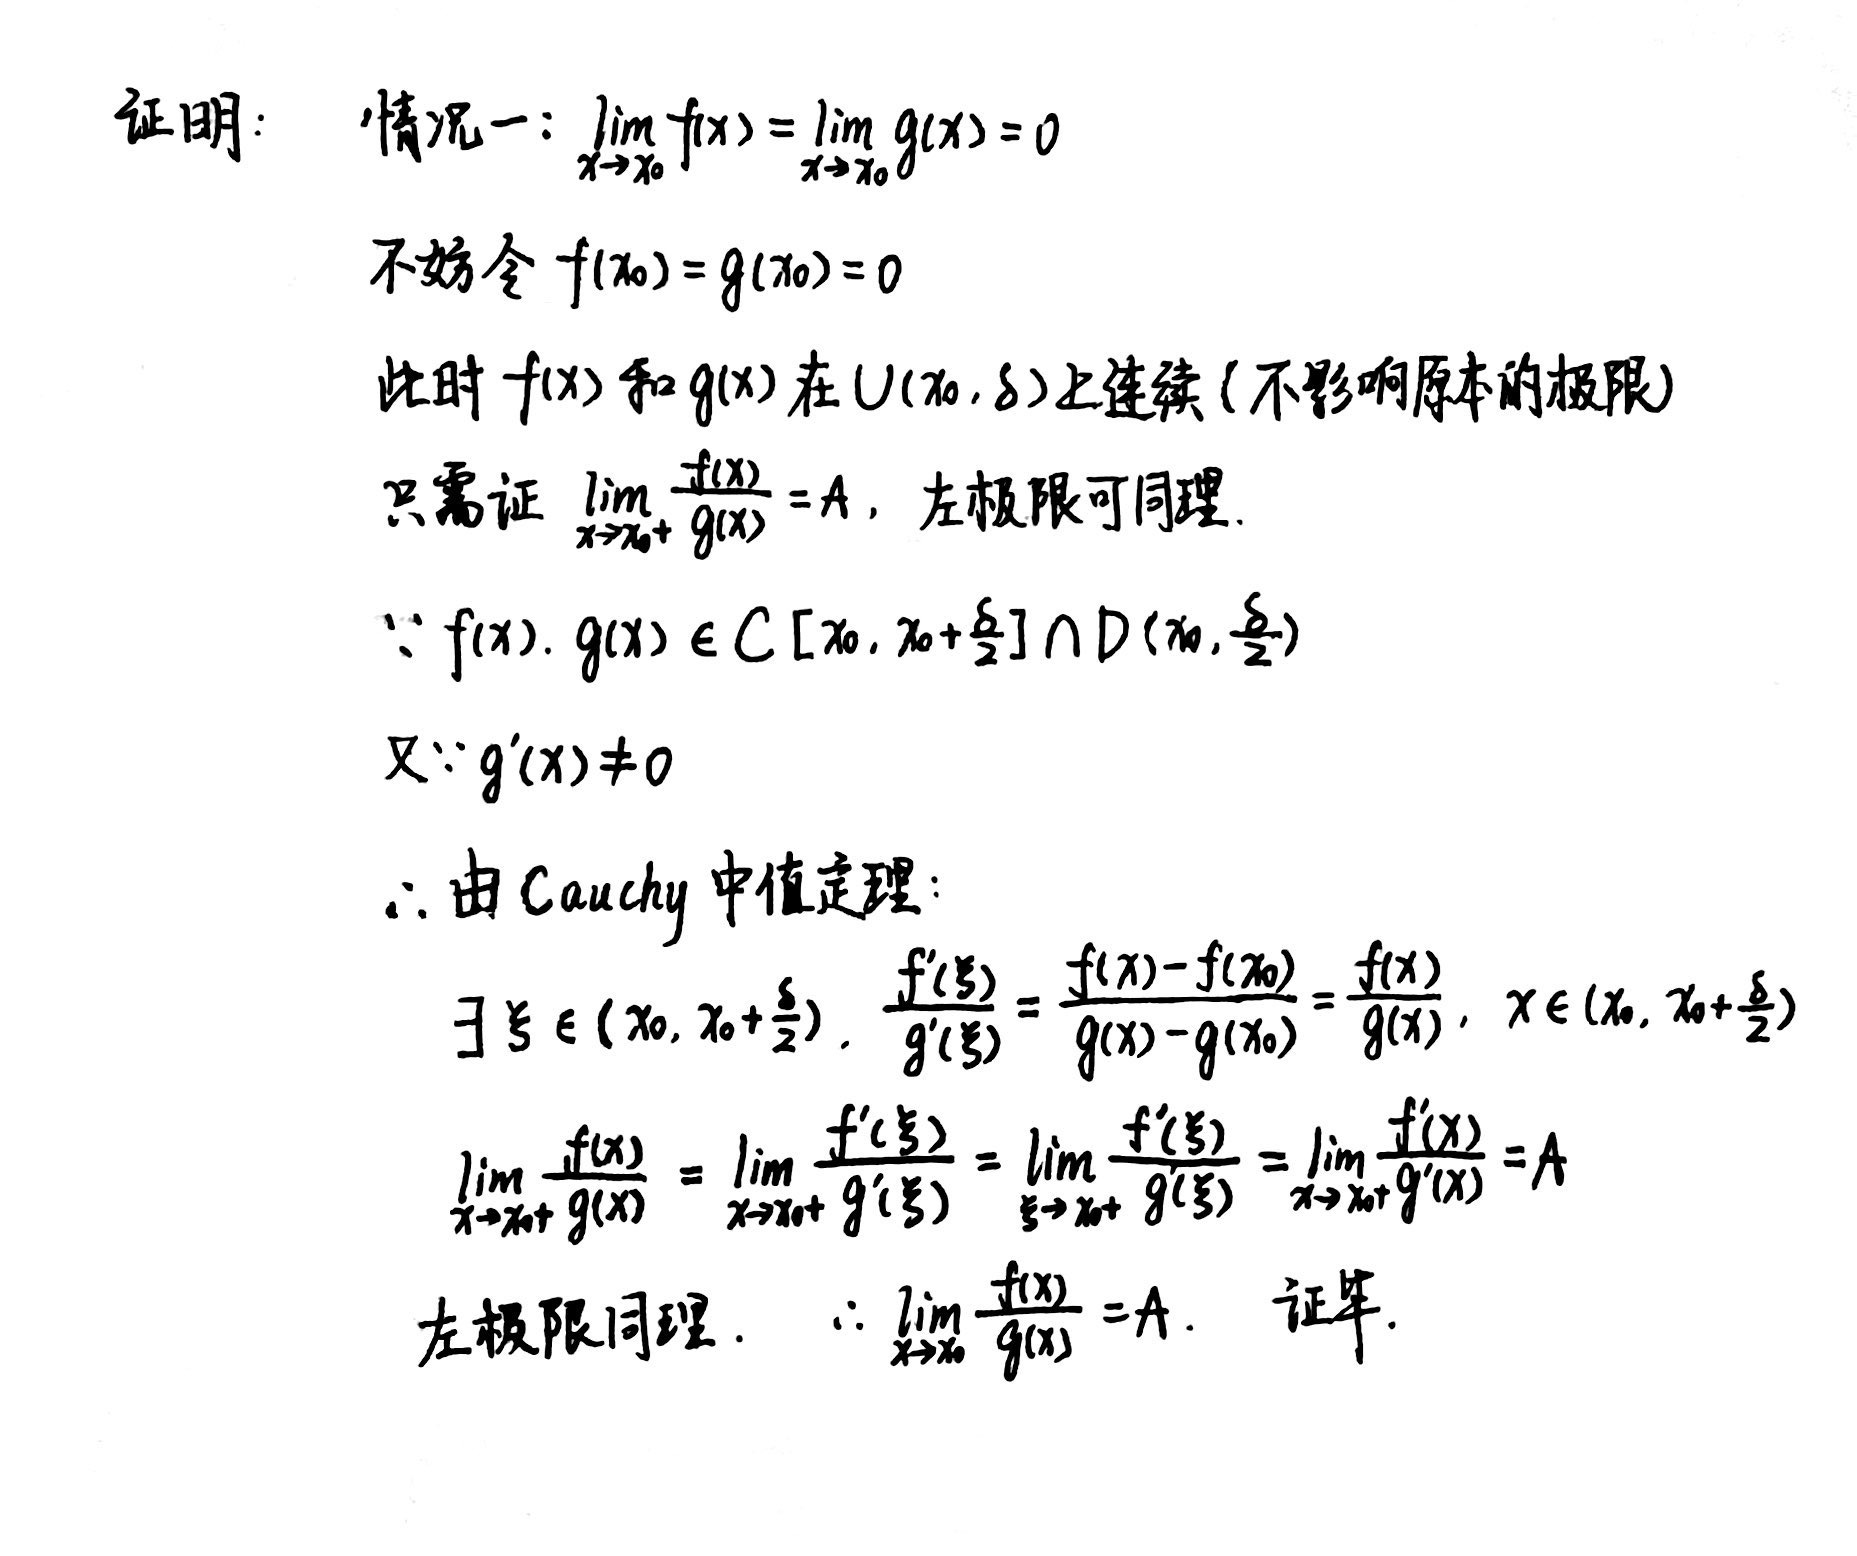 证明： 情况一：lim_{x→x₀} f(x) = lim_{x→x₀} g(x) = 0
不妨令 f(x₀) = g(x₀) = 0
此时 f(x) 和 g(x) 在 U(x₀, δ) 上连续 (不影响原本的极限)
只需证 lim_{x→x₀+} f(x)/g(x) = A, 左极限可同理.
∵ f(x). g(x) ∈ C [x₀, x₀+δ/2] ∩ D (x₀, δ/2)
又∵ g′(x) ≠ 0
∴ 由 Cauchy 中值定理：
∃ ξ ∈ (x₀, x₀+δ/2), f′(ξ)/g′(ξ) = (f(x)-f(x₀))/(g(x)-g(x₀)) = f(x)/g(x), x ∈ (x₀, x₀+δ/2)
lim_{x→x₀+} f(x)/g(x) = lim_{x→x₀+} f′(ξ)/g′(ξ) = lim_{ξ→x₀+} f′(ξ)/g′(ξ) = lim_{x→x₀+} f′(x)/g′(x) = A
左极限同理. ∴ lim_{x→x₀} f(x)/g(x) = A. 证毕.